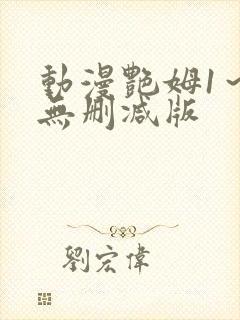 動漫艷姆1～
無刪減版
劉宏偉